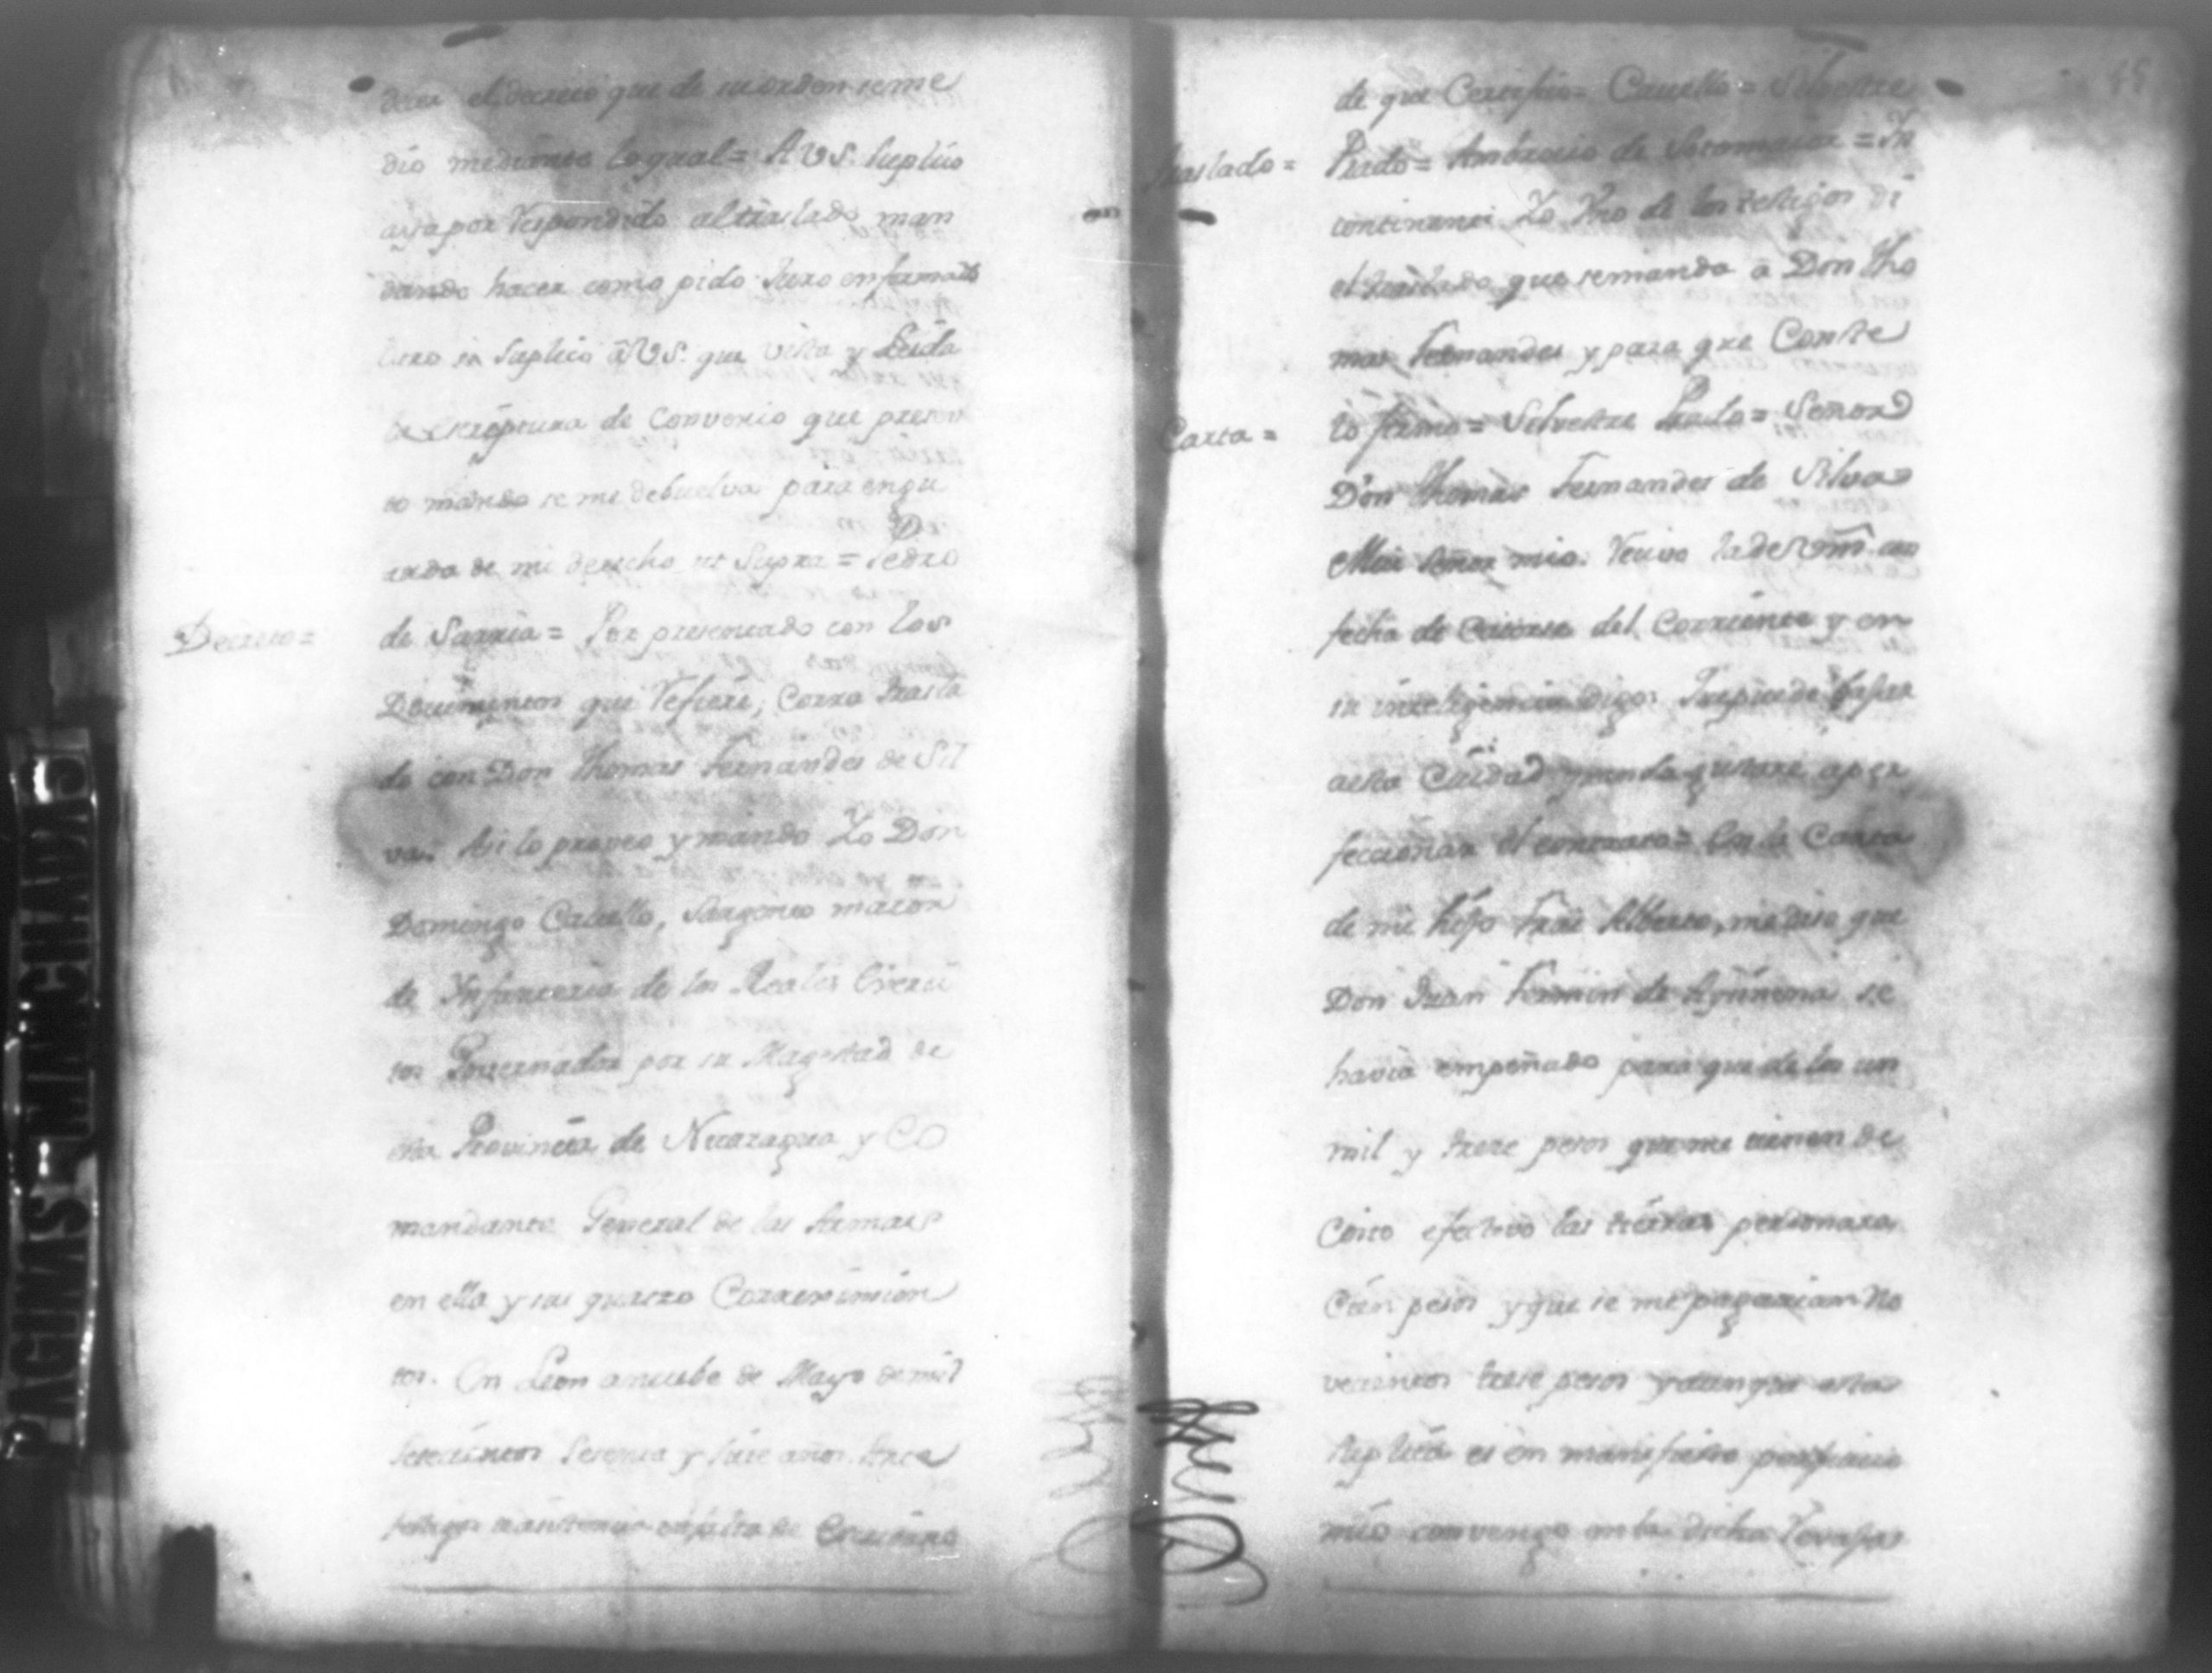 el decreto que de su orden se me
dio mediante lo qual = A VS. suplico
aya por Respondido al traslado man
dando hacer como pido Juro en forma
Suplico a VS. que vista y Leida
la escriptura de Convenio que presen
to mande se me debuelva para en gu
arda de mi derecho ut Supra = Pedro
Decreto =
de Sarria = Por presentado con los
Documentos que Refiere, Corra trasla
do con Don Thomas Fernandes de Sil
va. Asi lo proveo y mando Yo Don
Domingo Cavello, Sargento maior
de Ynfanteria de los Reales Exerci
tos Governador por su Magestad de
esta Provincia de Nicaragua y Co
mandante General de las Armas
en ella y sus quatro Corregimien
tos. En Leon a nuebe de Mayo de mil
setecientos Sesenta y siete años Ante
testigos a falta de Escrivano
45
de que Certifico = Cavello = Silvestre
traslado =
Prado = Ambrocio de Sotomaior = Yn
continenti Yo Uno de los testigos di
el traslado que se manda a Don Tho
mas Fernandes y para que Conste
Carta =
lo firmo = Silvestre Prado = Señor
Don Thomas Fernandes de Silva
Mui Señor mio. Recivo la de Vm̃. con
fecha de Catorse del Corriente y en
su inteligencia digo:
a esta Ciudad aper
feccionar el contrato = En la Carta
de mi hijo Frai Alberto, me dise que
Don Juan Fermin de Aysinena se
havia empeñado para que de los un
mil y trese pesos que me tienen de
Costo efectivo las tierras perdonara
Cien pesos y que se me pagarian No
vecientos trese pesos y aunque esta
Suplica es en manifiesto perjuicio
mio convengo en la dicha